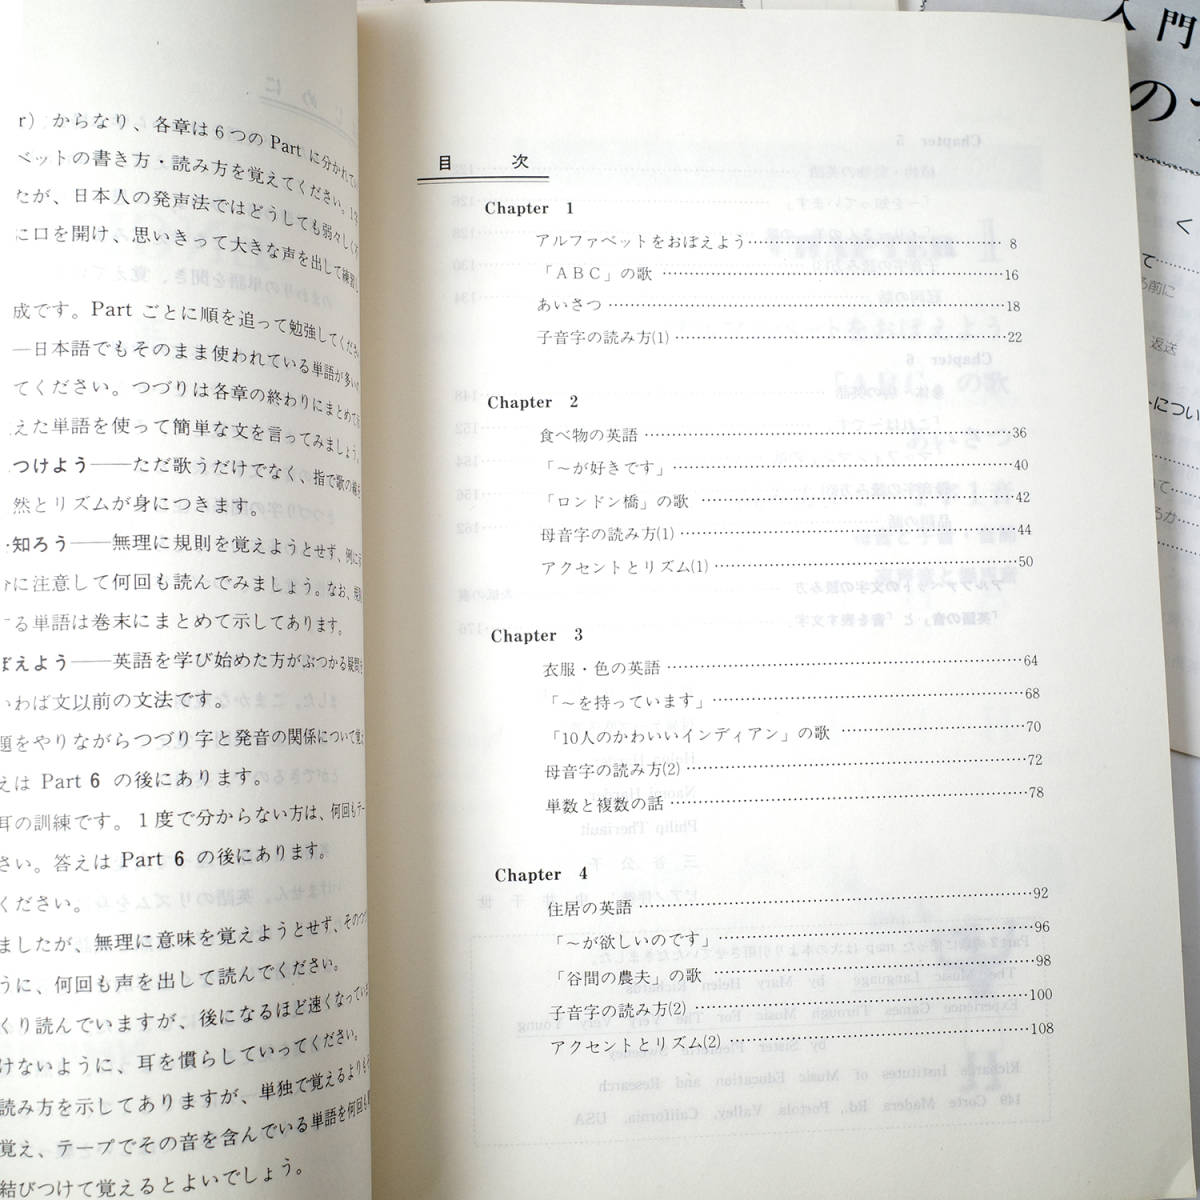 r）からなり、各章は6つのPartに分かれてい
ベットの書き方・読み方を覚えてください。1
たが、日本人の発声法ではどうしても弱々しく
に口を開け、思いきって大きな声を出して練習し
成です。Partごとに順を追って勉強してくださ
―日本語でもそのまま使われている単語が多い
てください。つづりは各章の終わりにまとめて
えた単語を使って簡単な文を言ってみましょう。
つけよう――ただ歌うだけでなく、指で歌の
然とリズムが身につきます。
知ろう――無理に規則を覚えようとせず、例に
に注意して何回も読んでみましょう。なお、
する単語は巻末にまとめて示してあります。
ぼえよう――英語を学び始めた方がぶつかる疑問
いわば文以前の文法です。
題をやりながらつづり字と発音の関係について
えは Part 6 の後にあります。
耳の訓練です。1度で分からない方は、何回もテー
さい。答えは Part 6 の後にあります。
ください。
ましたが、無理に意味を覚えようとせず、その
うに、何回も声を出して読んでください。
くり読んでいますが、後になるほど速くなってい
けないように、耳を慣らしていってください。
読み方を示してありますが、単独で覚えるより
覚え、テープでその音を含んでいる単語を何回も
結びつけて覚えるとよいでしょう。
目 次
Chapter 1
アルファベットをおぼえよう……8
「ABC」の歌……16
あいさつ……18
子音字の読み方(1)……22
Chapter 2
食べ物の英語……36
「～が好きです」……40
「ロンドン橋」の歌……42
母音字の読み方(1)……44
アクセントとリズム(1)……50
Chapter 3
衣服・色の英語……64
「～を持っています」……68
「10人のかわいいインディアン」の歌……70
母音字の読み方(2)……72
単数と複数の話……78
Chapter 4
住居の英語……92
「～が欲しいのです」……96
「谷間の農夫」の歌……98
子音字の読み方(2)……100
アクセントとリズム(2)……108
入門
の
く
て……
る前に
返送
トについ
いて……
るか……